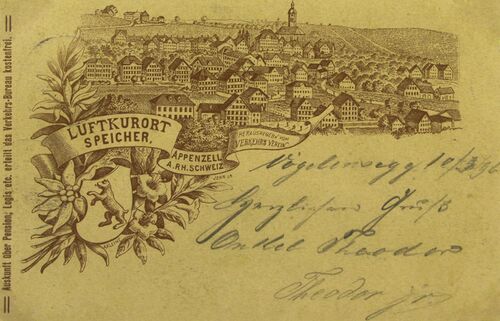 Auskunft über Pension; Logis etc. erteilt das Verkehrs-Bureau kostenfrei.
LUFTKURORT
SPEICHER,
APPENZELL
A.RH. SCHWEIZ
HERAUSGEGEBEN VOM
VERKEHRS VEREIN
Vögelinsegg
Herzlichen Gruß
Onkel Theodor
Theodor jr.